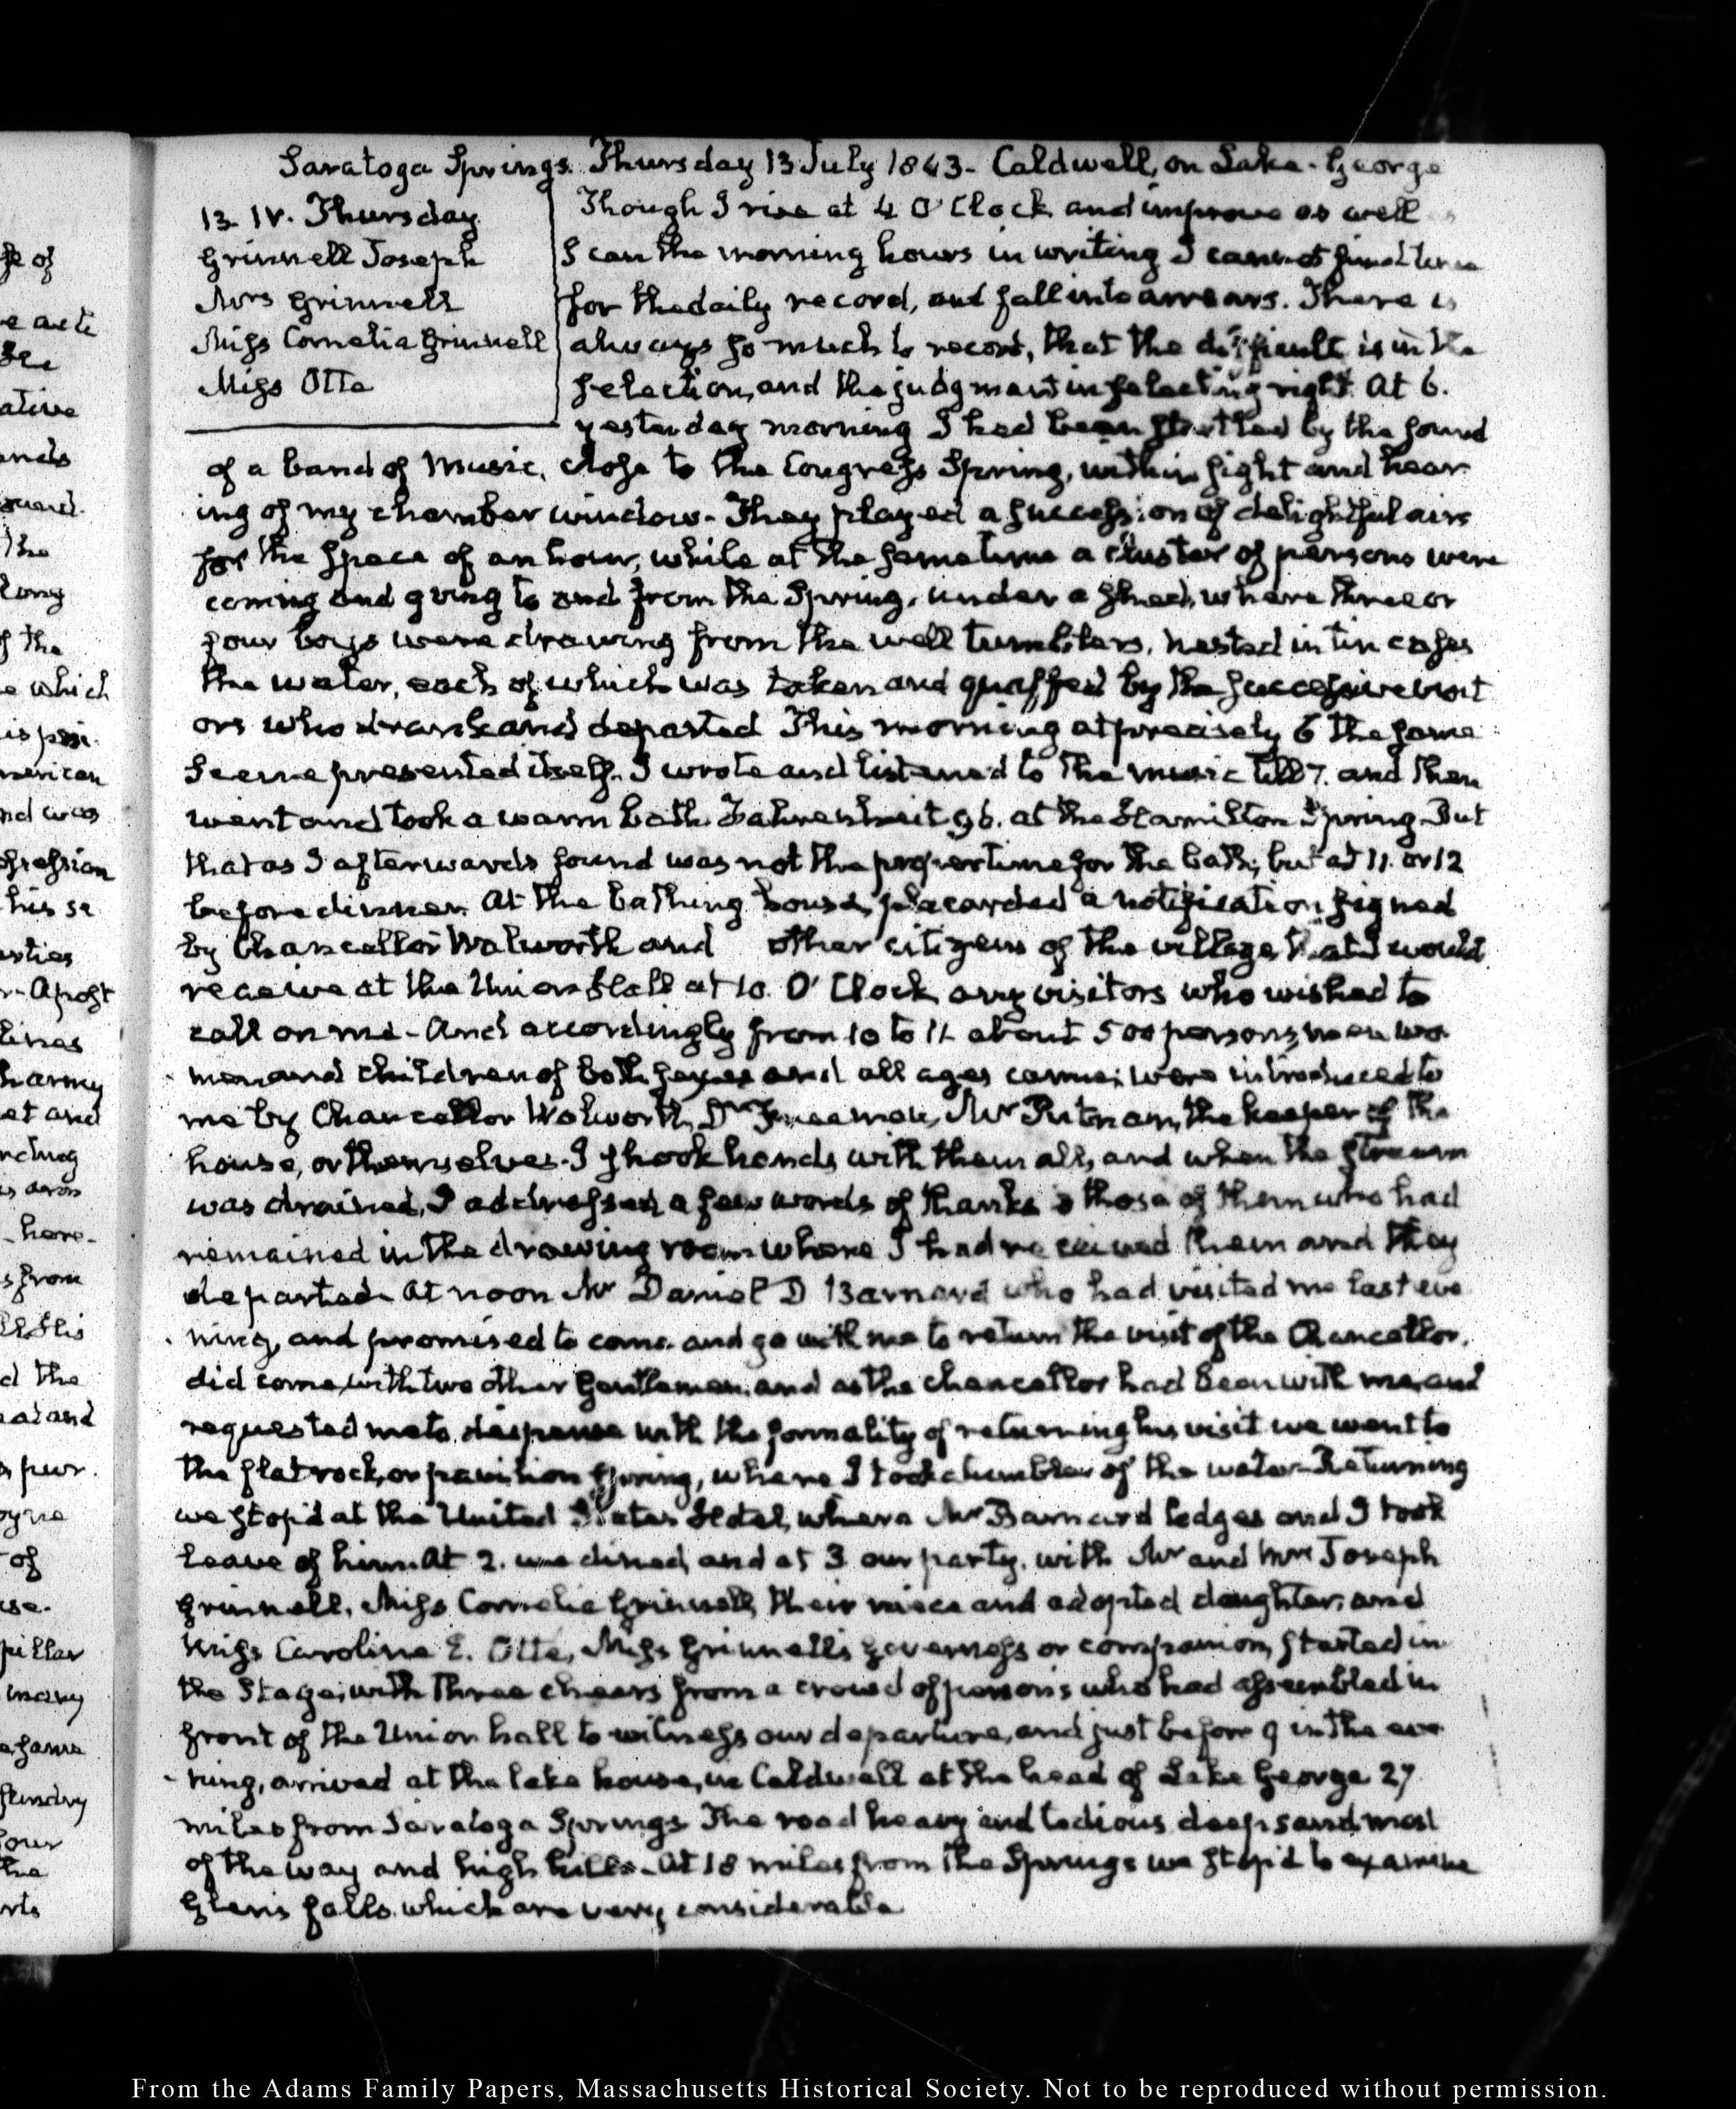 Saratoga Springs. Thursday 13 July 1843 - Caldwell, on Lake-George
13. IV. Thursday
Grinnell Joseph
Mrs Grinnell
Miss Cornelia Grinnell
Miss Otte
Though I rise at 4 O'Clock and improve as well as
I can the morning hours in writing I cannot find time
for the daily record, and fall into arrears. There is
always so much to record, that the difficult is in the
selection, and the judgment in selecting right. At 6.
yesterday morning I had been startled by the sound
of a band of Music, close to the Congress Spring, within sight and hear
ing of my chamber window - They played a succession of delightful airs
for the space of an hour, while at the same time a cluster of persons were
coming and going to and from the Spring, under a shed, where three or
four boys were drawing from the well tumblers, nested in tin cases
the water, each of which was taken and quaffed by the successive visit
ors who drank and departed This morning at precisely 6 the same
scene presented itself. I wrote and listened to the music till 7. and then
went and took a warm bath Fahrenheit 96. at the Hamilton Spring But
that as I afterwards found was not the proper time for the bath; but at 11. or 12
before dinner. At the bathing house, placarded a notification signed
by Chancellor Walworth and other citizens of the village that I would
receive at the Union Hall at 10. O'Clock any visitors who wished to
call on me - And accordingly from 10 to 11 about 500 persons, men wo-
-men and children of both sexes and all ages came, were introduced to
me by Chancellor Walworth, Dr Freeman, Mr Putnam, the keeper of the
house, or themselves. I shook hands with them all, and when the stream
was drained, I addressed a few words of thanks to those of them who had
remained in the drawing room where I had received them and they
departed. At noon Mr Daniel D Barnard who had visited me last eve
-ning, and promised to come and go with me to return the visit of the Chancellor,
did come, with two other Gentlemen, and as the chancellor had been with me, and
requested me to dispense with the formality of returning his visit we went to
the flat rock, or pavilion spring, where I took a tumbler of the water - Returning
we stop'd at the United States Hotel, where Mr Barnard lodges and I took
leave of him. At 2. we dined, and at 3 our party, with Mr and Mrs Joseph
Grinnell, Miss Cornelia Grinnell, their niece and adopted daughter, and
Miss Caroline E. Otte, Miss Grinnell's governess or companion, started in
the Stage, with three cheers from a crowd of persons who had assembled in
front of the Union hall to witness our departure, and just before 9 in the eve
-ning, arrived at the lake house, in Caldwell at the head of Lake George 27
miles from Saratoga Springs The road heavy and tedious deep sand most
of the way and high hills - At 18 miles from the Springs we stop'd to examine
Glen's falls, which are very considerable
fe of
ative
ands
The
long
of the
e which
merican
nd was
ofession
his se
Apost
army
et and
here
from
d the
of
pillar
many
same
four
the
From the Adams Family Papers, Massachusetts Historical Society. Not to be reproduced without permission.